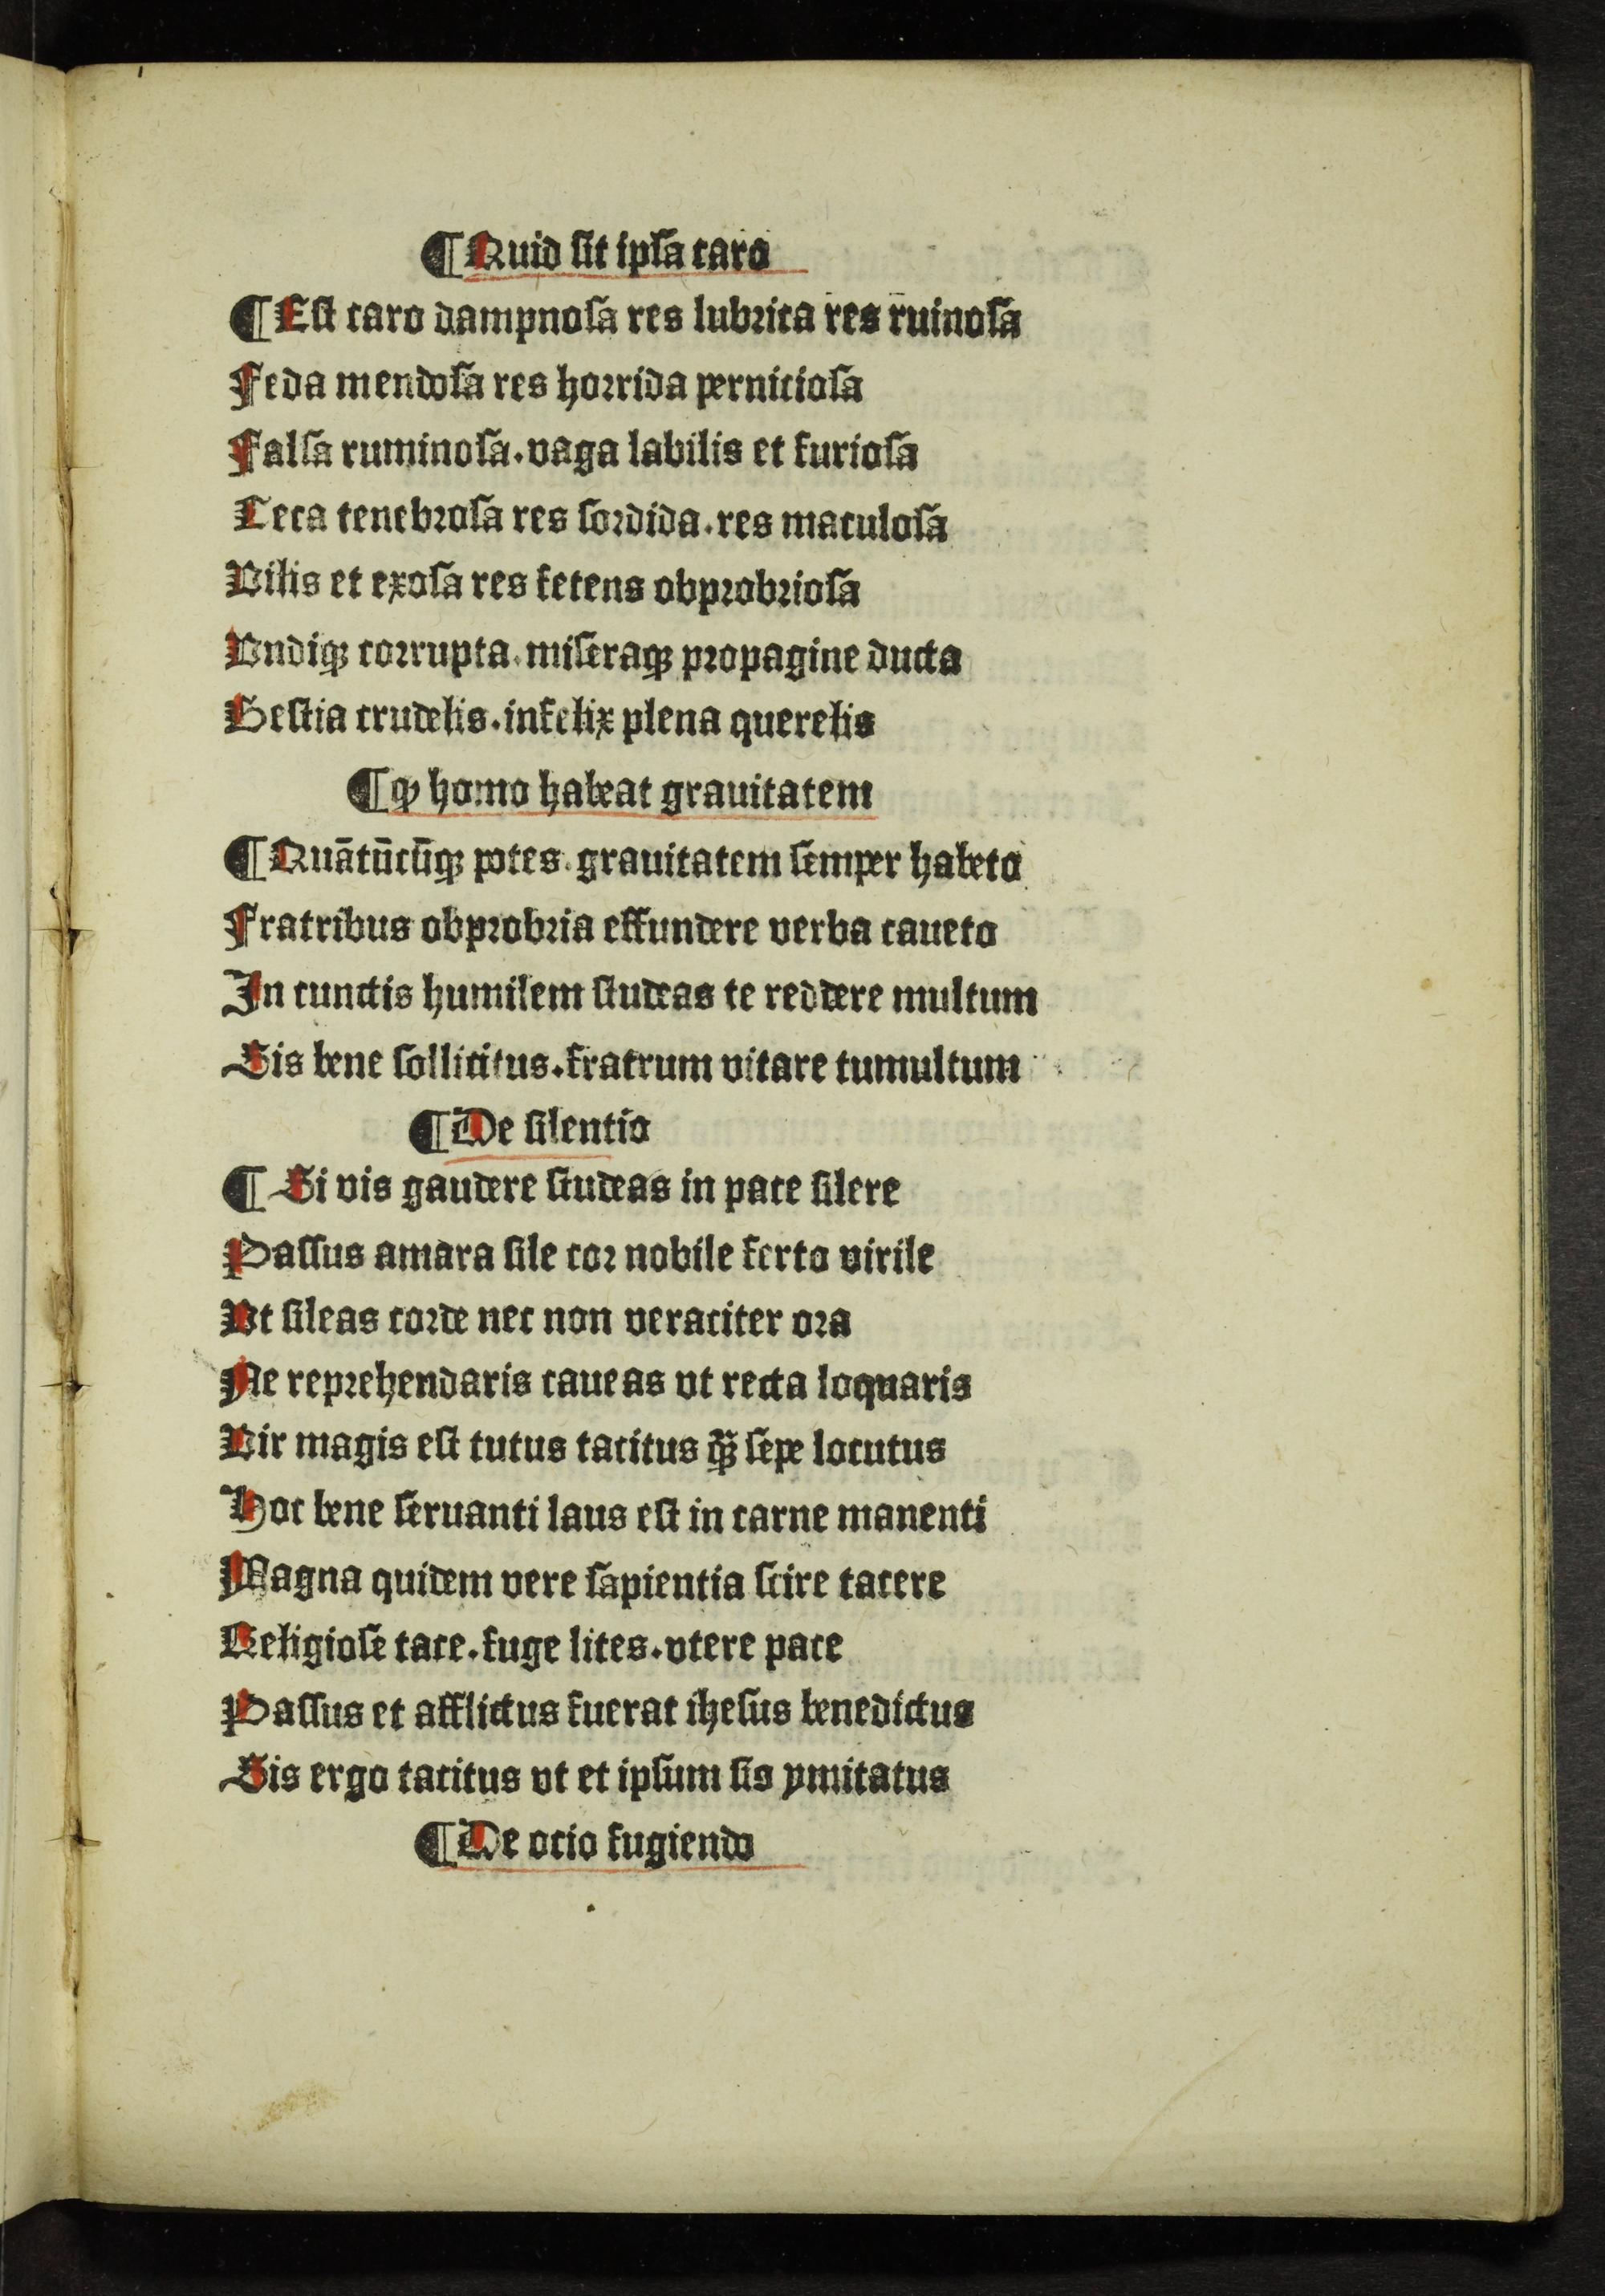 ¶Quid ſit ipſa caro
¶Eſt caro dampnoſa res lubrica res ruinoſa
Feda mendoſa res horrida pernicioſa
Falſa ruminoſa.vaga labilis et furioſa
Teca tenebroſa res ſordida.res maculoſa
Vilis et exoſa res fetens obprobrioſa
Vndiqꝫ corrupta.miſeraqꝫ propagine ducta
Beſtia crudelis.infelix plena querelis
¶ꝙ homo habeat grauitatem
¶Quātūcūqꝫ potes.grauitatem ſemper habeto
Fratribus obprobria effundere verba caueto
In cunctis humilem ſtudeas te reddere multum
Sis bene ſollicitus.fratrum vitare tumultum
¶De ſilentio
¶Si vis gaudere ſtudeas in pace ſilere
Paſſus amara ſile cor nobile ferto virile
Vt ſileas corde nec non veraciter ora
Ne reprehendaris caueas vt recta loquaris
Vir magis eſt tutus tacitus qꝫ̃ ſepe locutus
Hoc bene ſeruanti laus eſt in carne manenti
Magna quidem vere ſapientia ſcire tacere
Religioſe tace.fuge lites.vtere pace
Paſſus et afflictus fuerat iheſus benedictus
Sis ergo tacitus vt et ipſum ſis ymitatus
¶De ocio fugiendo